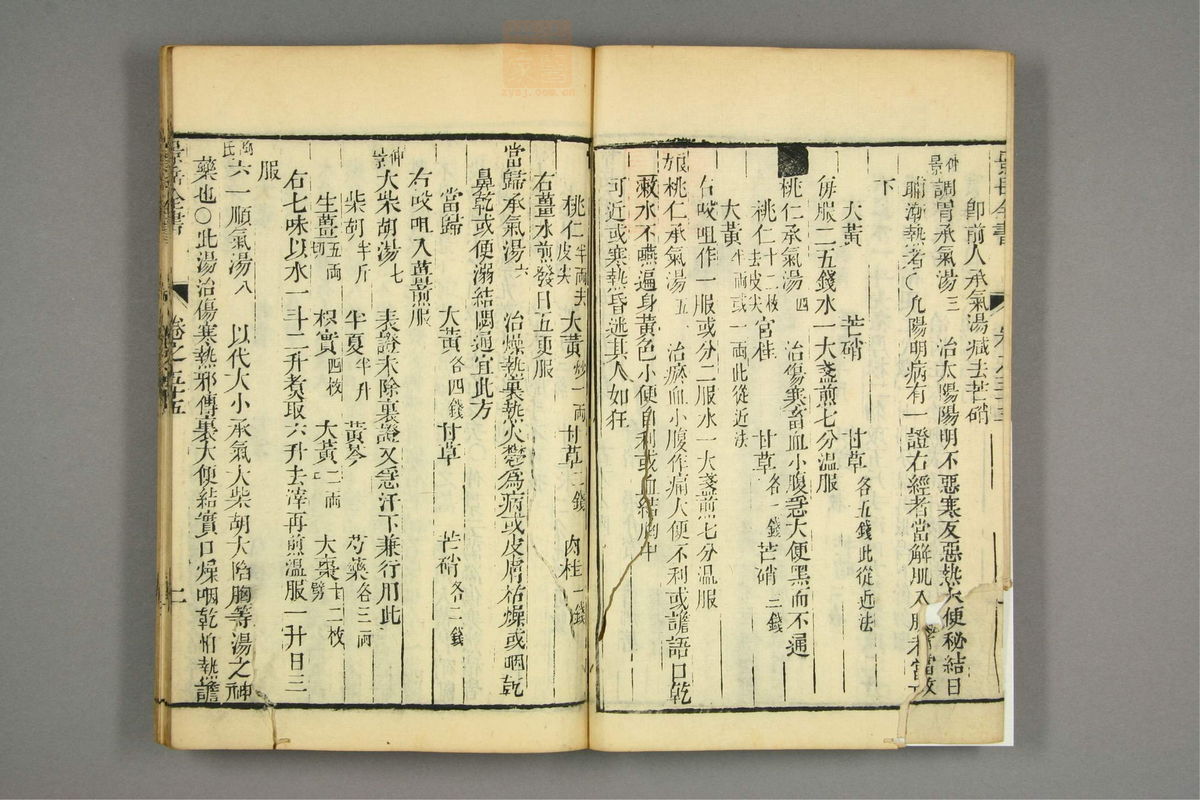 即前人承氣湯減去芒硝
仲景調胃承氣湯三 治太陽陽明不惡寒反惡熱大便秘結日
晡潮熱者○凡陽明病有一證右經者當解肌入
下
大黃 芒硝 甘草各五錢此從近法
每服二五錢水一大盞煎七分溫服
桃仁承氣湯四 治傷寒畜血小腹急大便黑而不通
桃仁十二枚去皮尖 官桂 甘草各一錢 芒硝三錢
大黃半兩或一兩此從近法
右㕮咀作一服或分二服水一大盞煎七分溫服
桃仁承氣湯五 治瘀血小腹作痛大便不利或譫語口乾
漱水不嚥遍身黃色小便自利或血結胸中
可近或寒熱昏迷其人如狂
桃仁半兩去皮尖 大黃炒一兩 甘草二錢 肉桂一錢
右薑水煎發日五更服
當歸承氣湯六 治燥熱裏熱火鬱為病或皮膚枯燥或咽乾
鼻乾或便溺結閉通宜此方
當歸 大黃各四錢 甘草 芒硝各二錢
右㕮咀入薑煎服
仲景大柴胡湯七 表證未除裏證又急汗下兼行用此
柴胡半斤 半夏半升 黃芩 芍藥各三兩
生薑五兩切 枳實四枚 大黃二兩 大棗十二枚劈
右七味以水一斗二升煮取六升去滓再煎溫服一升日三
服
陶氏六一順氣湯八 以代大小承氣大柴胡大陷胸等湯之神
藥也○此湯治傷寒熱邪傳裏大便結實口燥咽乾怕熱譫
景岳全書 卷之五十五
zysj.com.cn